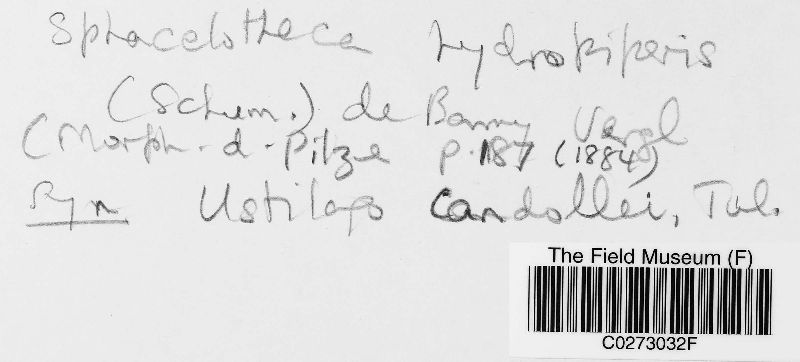 Sphacelotheca hydropiperis
(Schum.) de Barry Vergl
(Morph. d. Pilze p. 187 (1884)
Syn Ustilago Candollei, Tul.
The Field Museum (F)
C0273032F